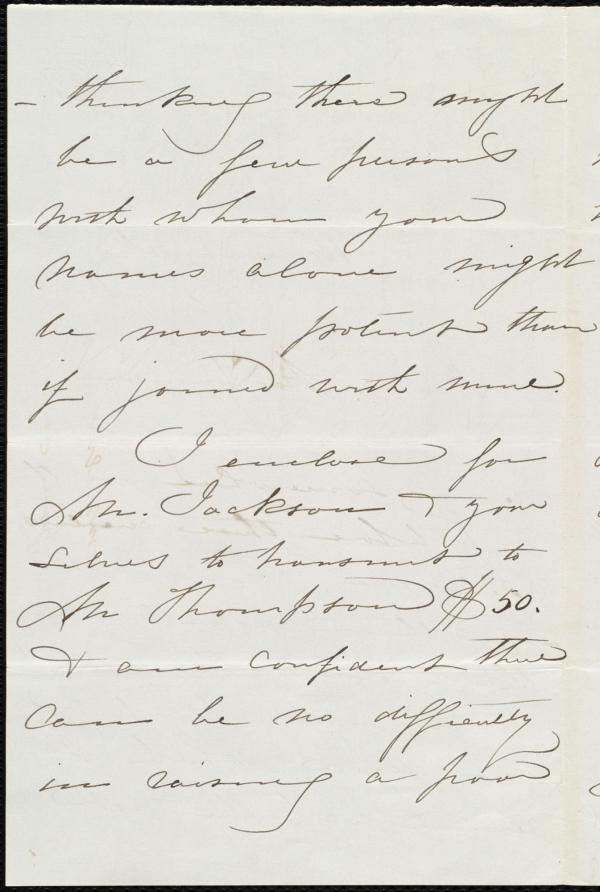 – thinking there might
be a few persons
with whom your
names alone might
be more potent than
if joined with mine.
I enclose for
Mr. Jackson & your
selves to transmit to
Mr Thompson $50.
& am confident there
can be no difficulty
in raising a poor